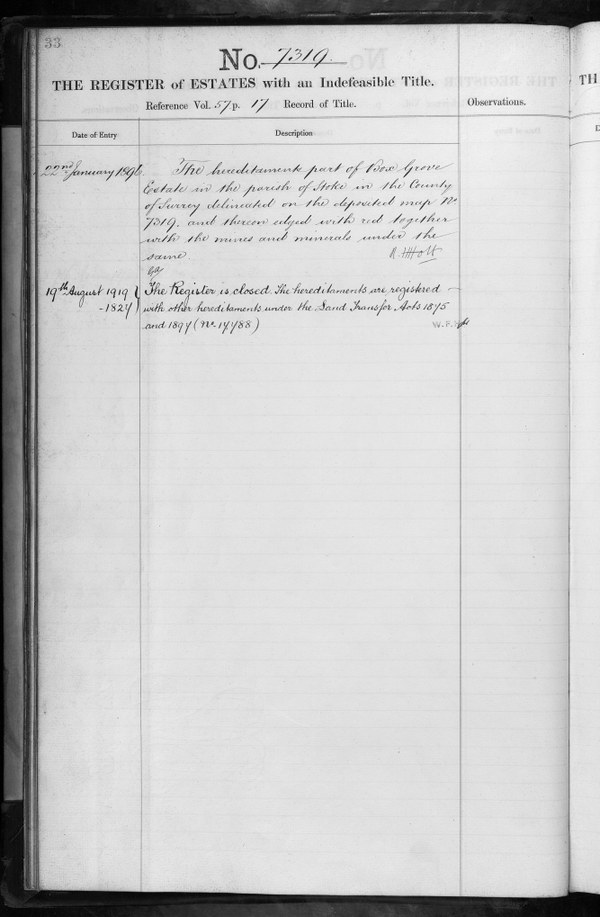 33
No. 7319.
THE REGISTER of ESTATES with an Indefeasible Title.
Reference Vol. 57 p. 17 Record of Title.
Observations.
Date of Entry
Description
22nd January 189
The hereditaments part of Box Grove
Estate in the parish of Stoke in the County
of Surrey delineated on the deposited map No
7319. and thereon edged with red together
with the mines and minerals under the
same
R. H. Holt
19th August 1919
-1824
The Register is closed. The hereditaments are registred
with other hereditaments under the Land Transfer Acts 1875
and 1897 (No. 17788)
TH
D